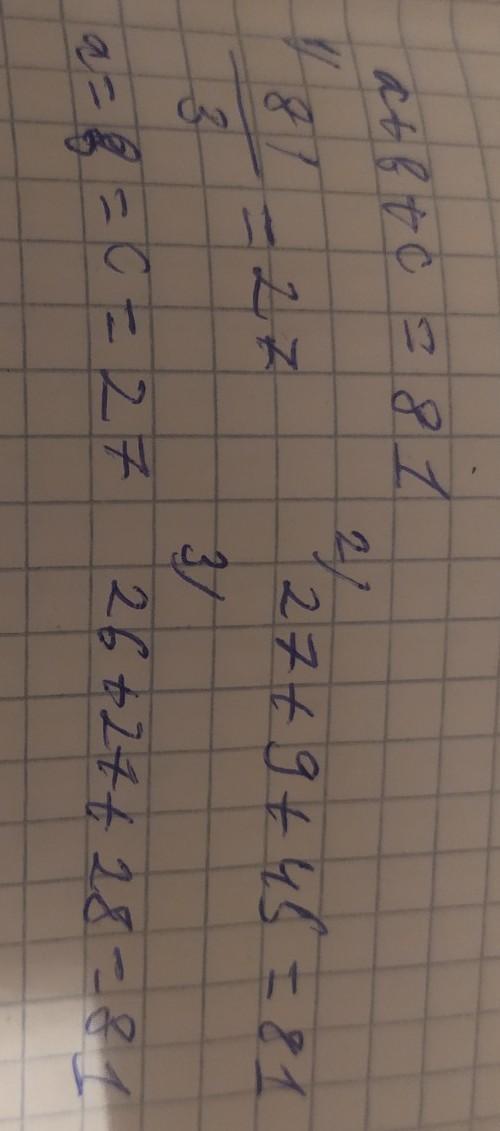 a+b+c = 81
1)
81
3
= 27
a = b = c = 27
2)
27 + 9 + 45 = 81
3)
26 + 27 + 28 = 81